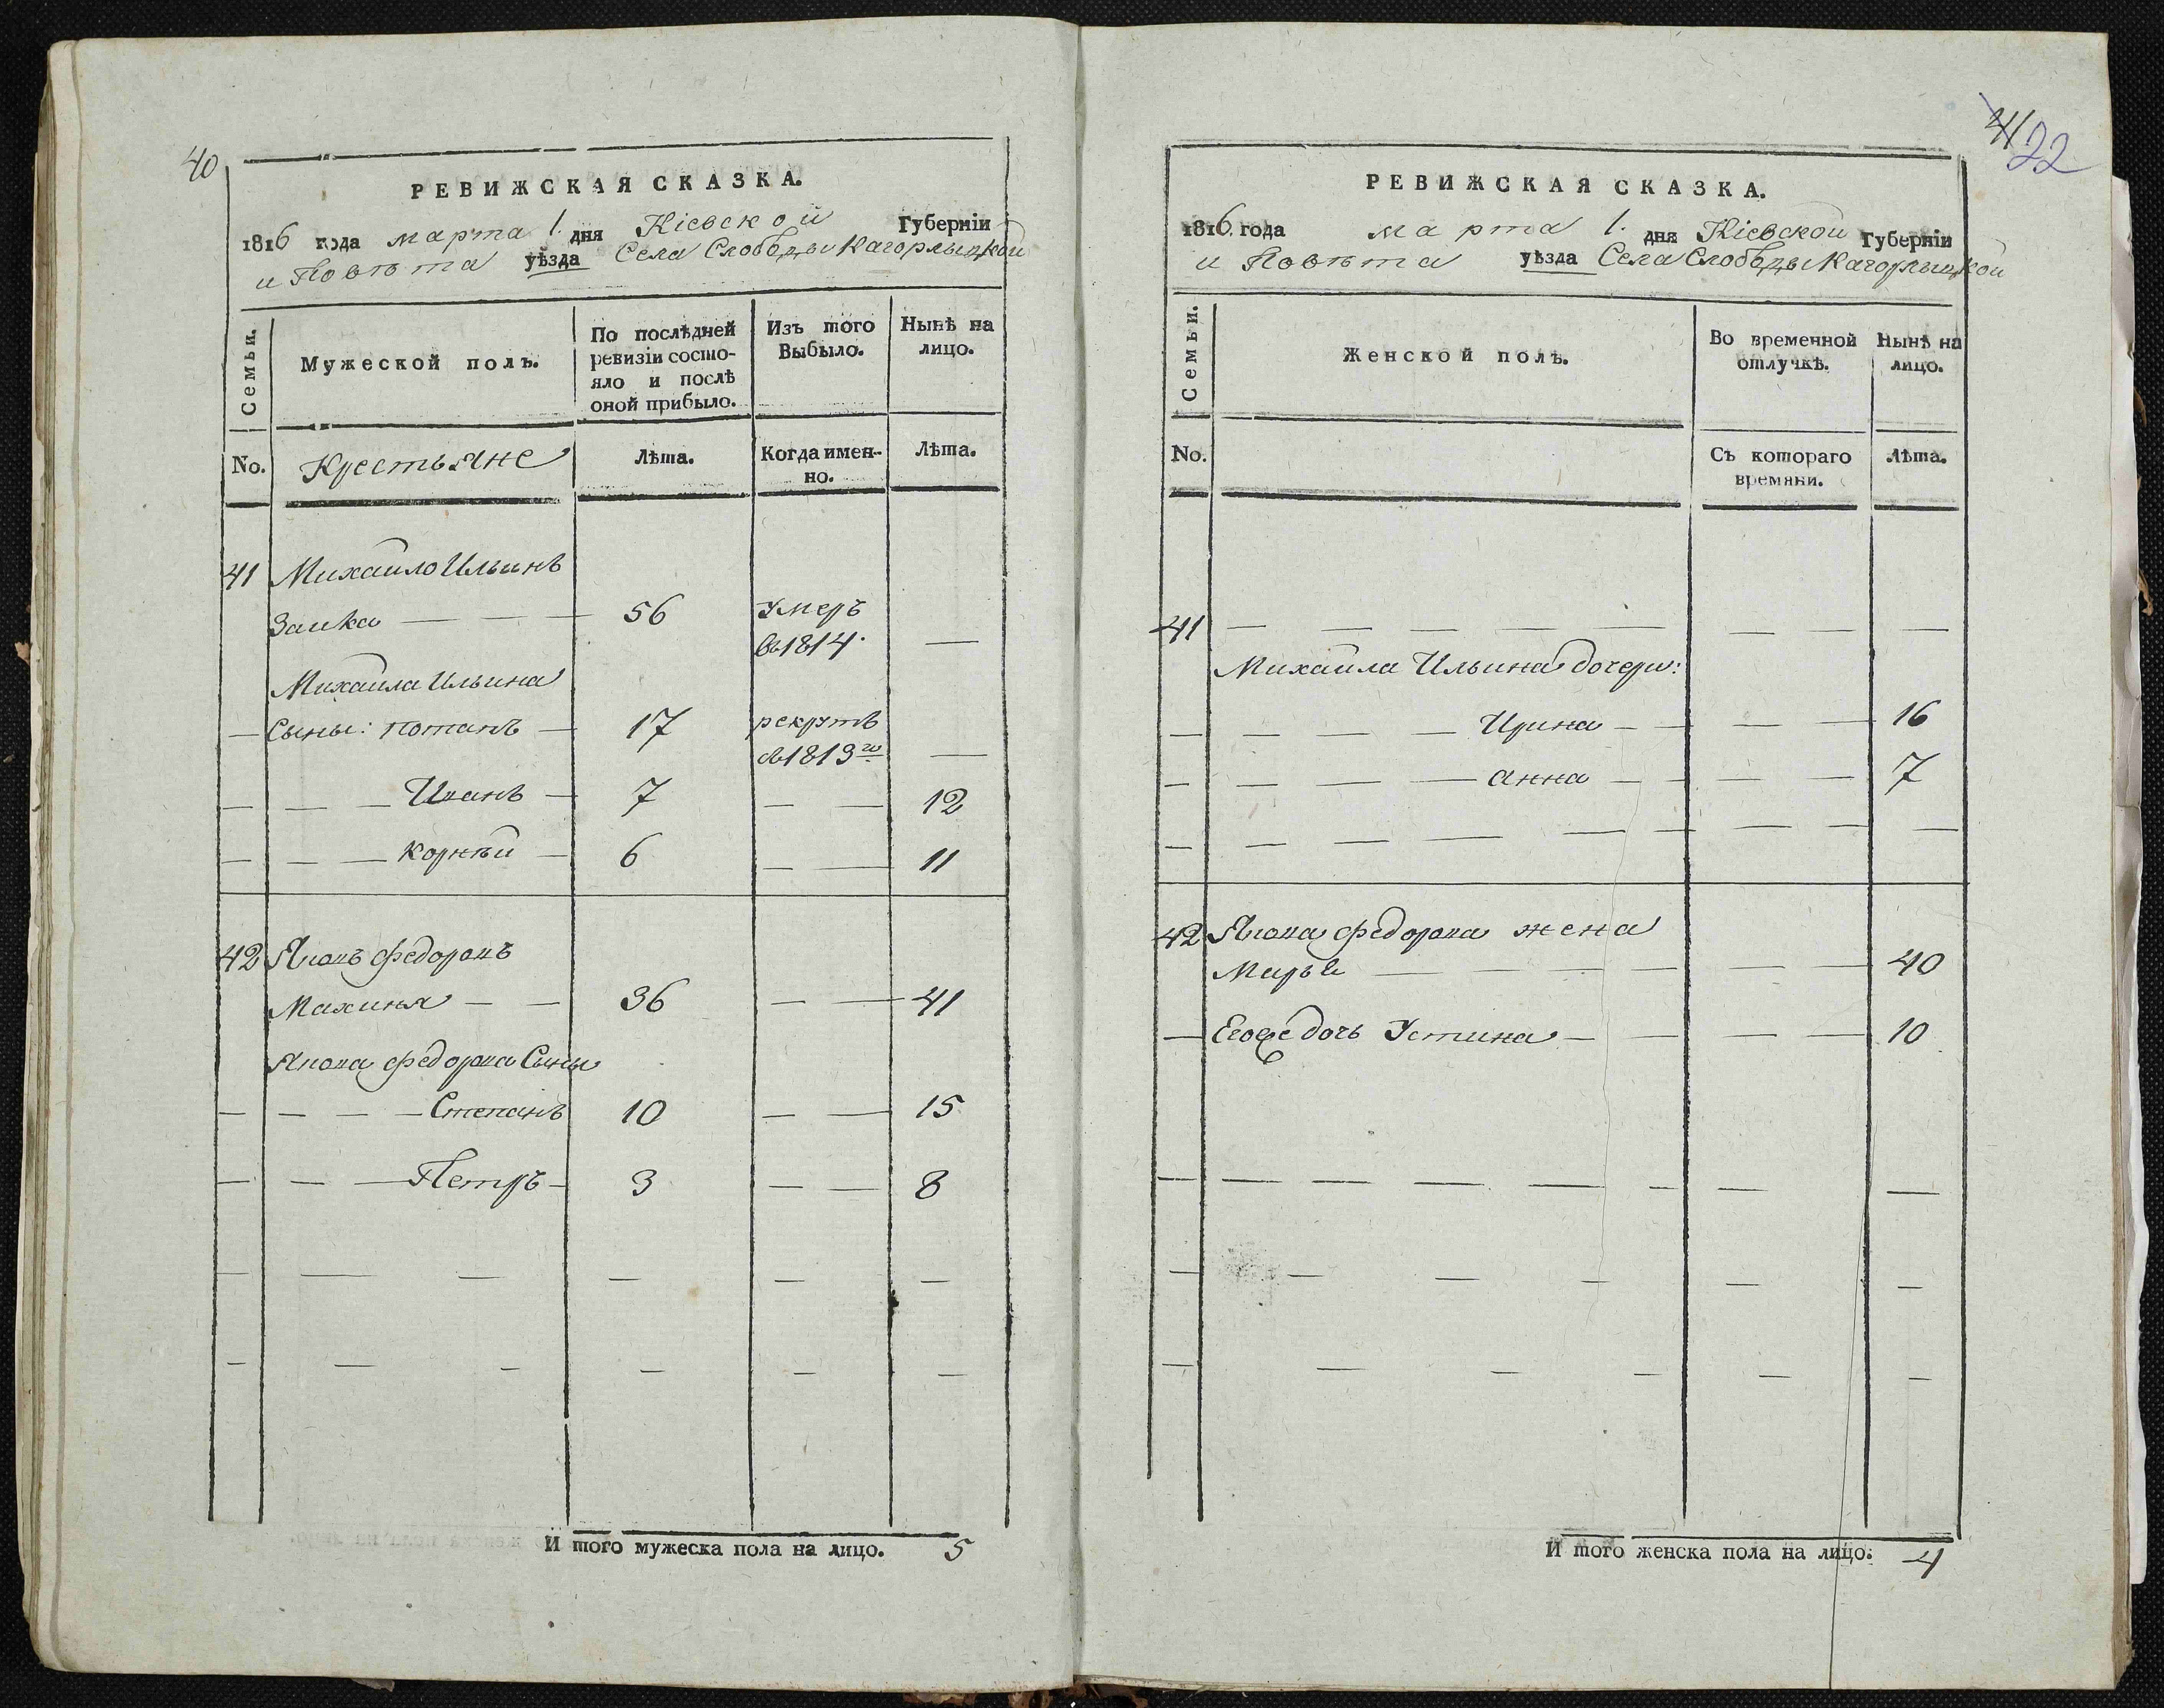 40
РЕВИЖСКАЯ СКАЗКА.
1816 года марта 1. дня Кіевской Губерніи
и Повѣта уѣзда Села Слободы Кагорлыцкой
Семьи.
Мужеской полъ.
По послѣдней ревизіи состо-
яло и послѣ
оной прибыло.
Изъ того
Выбыло.
Нынѣ на
лицо.
No.
Крестьяне
Лѣта.
Когда имен-
но.
Лѣта.
41 Михайло Ильинъ
Заика 56 умеръ
въ 1814.
Михайла Ильина
Сыны: Потапъ 17 рекрутъ
въ 1813го
Иванъ 7 12
Корнѣй 6 11
42 Яковъ Федоровъ
Махиня 36 41
Якова Федорова Сыны
Степанъ 10 15
Петръ 3 8
И того мужеска пола на лицо. 5
41
22
РЕВИЖСКАЯ СКАЗКА.
1816 года марта 1. дня Кіевской Губерніи
и Повѣта уѣзда Села Слободы Кагорлыцкой
Семьи.
Женской полъ.
Во временной
отлучкѣ.
Нынѣ на
лицо.
No.
Съ котораго
времяни.
Лѣта.
41
Михайла Ильина дочери:
Ирина 16
Анна 7
42 Якова Федорова жена
Марья 40
Его же дочь Устина 10
И того женска пола на лицо: 4